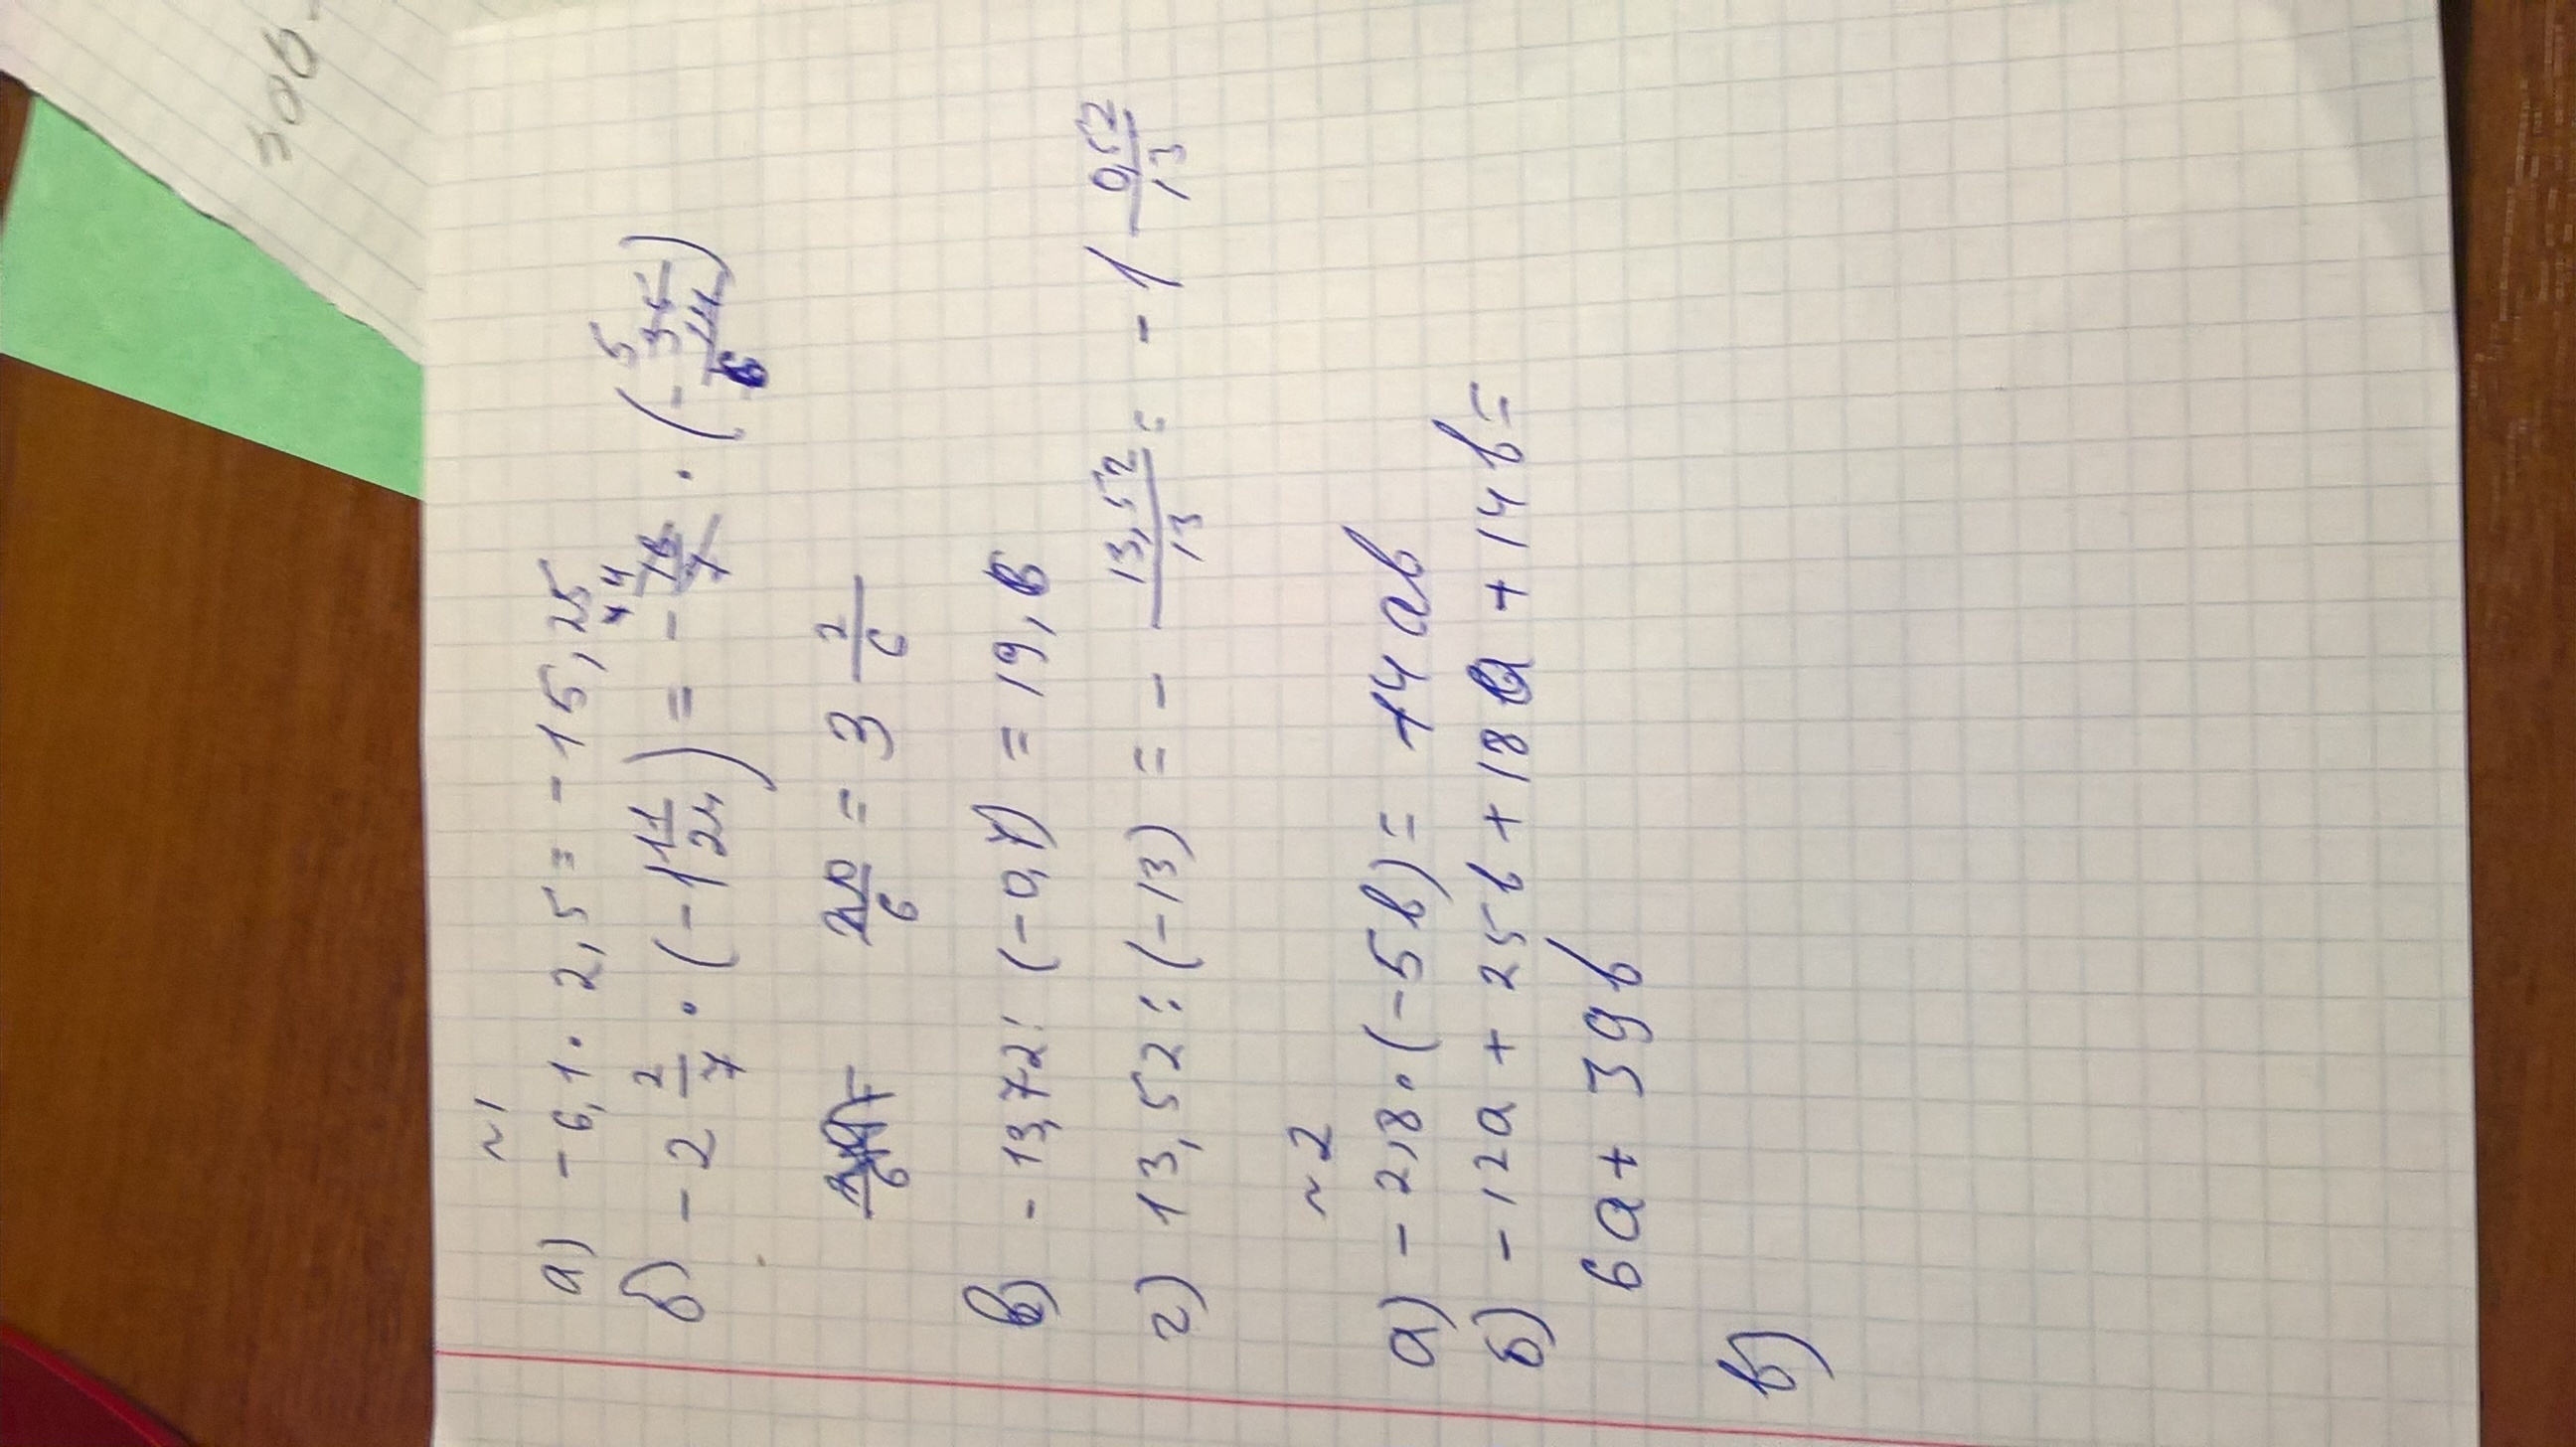 ~1
а) - 6,1 · 2,5 = - 15,25
б) - 2 2/7 · (- 1 11/24) = - 16/7 · (- 35/24)
20/6 = 3 2/6
в) - 13,72 : (- 0,7) = 19,6
г) 13,52 : (-13) = - 13,52/13 = - 1 0,52/13
~2
а) - 2,8 · (-5b) = 14ab
б) - 12a + 25b + 18a + 14b =
6a + 39b
в)